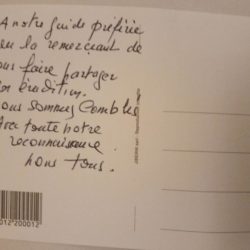 A notre guide préférée
en la remerciant de
ous faire partager
on érudition.
ous sommes Comblés
Avec toute notre
reconnaissance.
nous tous.
012200012